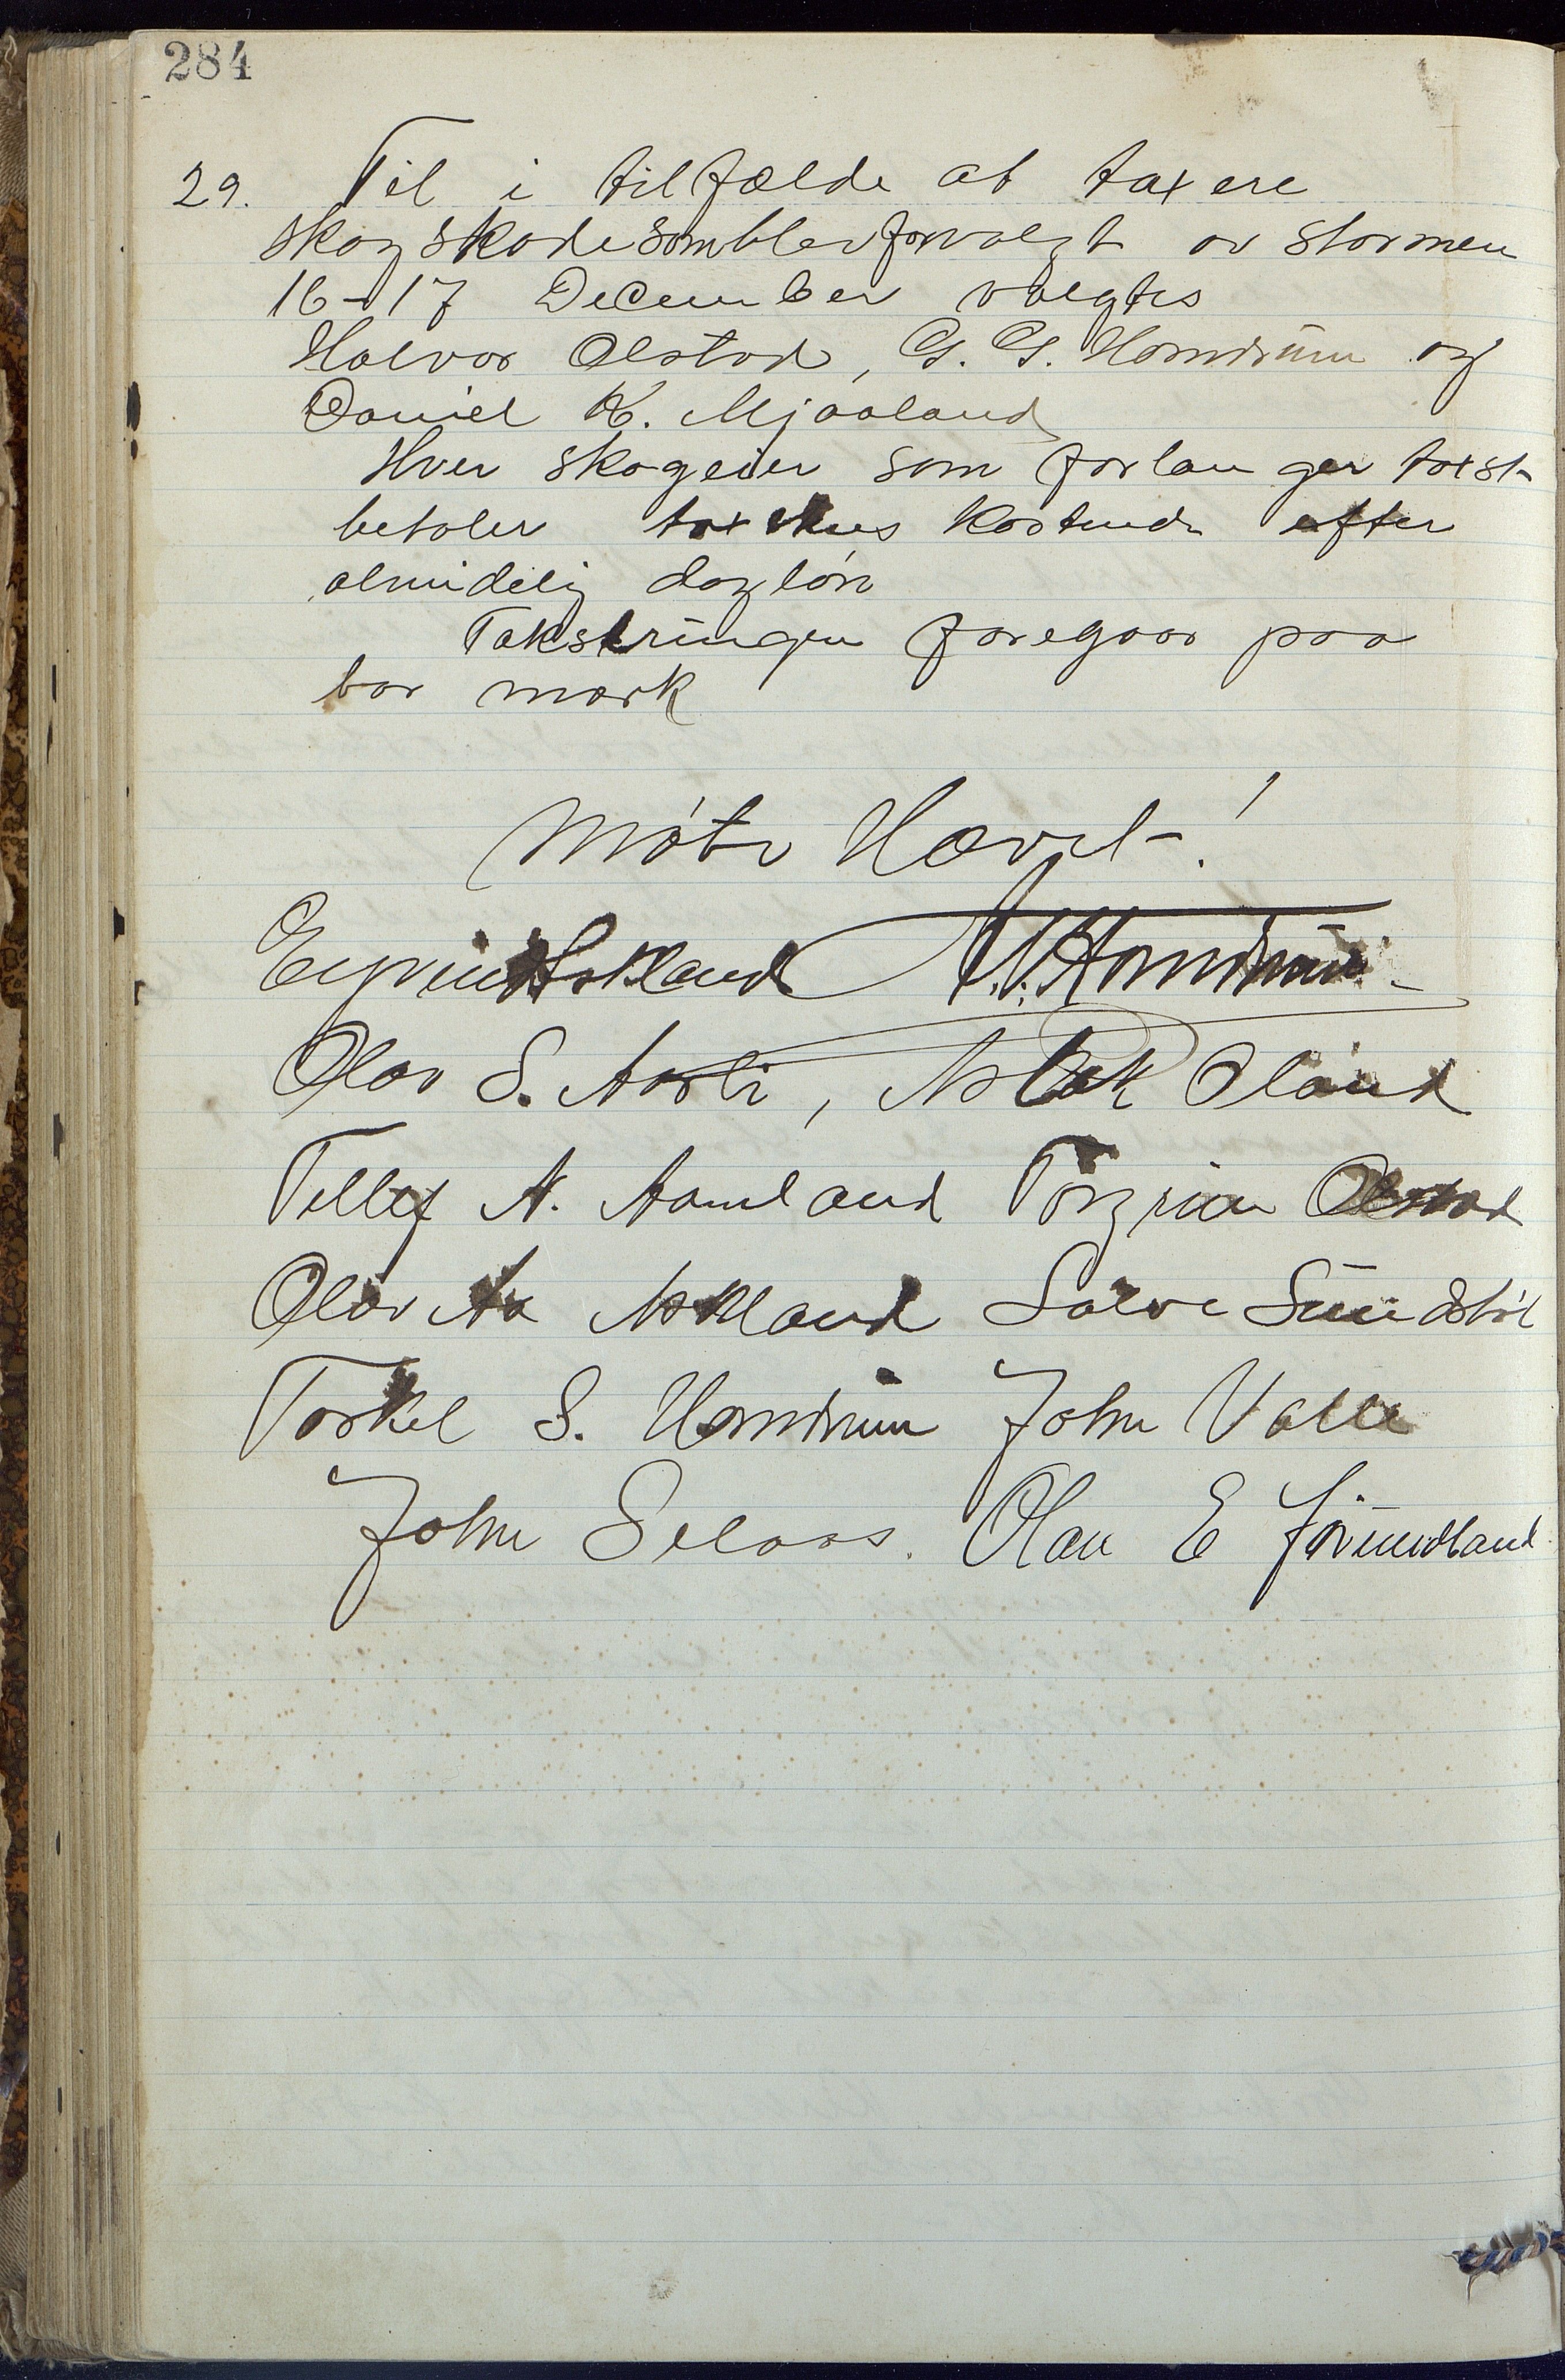 284
29. Til i tilfælde at taxere
skogskade som blev forvolgt av stormen
16-17 December valgtes
Halvor Olstad, G. G. Homdrum og
Daniel K. Mjaaland
Hver skogeier som forlanger taxst
betaler taxtens kostende efter
almidelig dagløn
Takseringen foregaar paa
bar mark
Møte Hævet!
Eyvind Askland Homdrum
Olav S. Aasli, Aslak Oland
Tellef N. Aamland Torgrim Olstad
Olav Aa Askland Salve Sundstøl
Torkel S. Homdrum John Valle
John Selaas. Olav E Jørundland